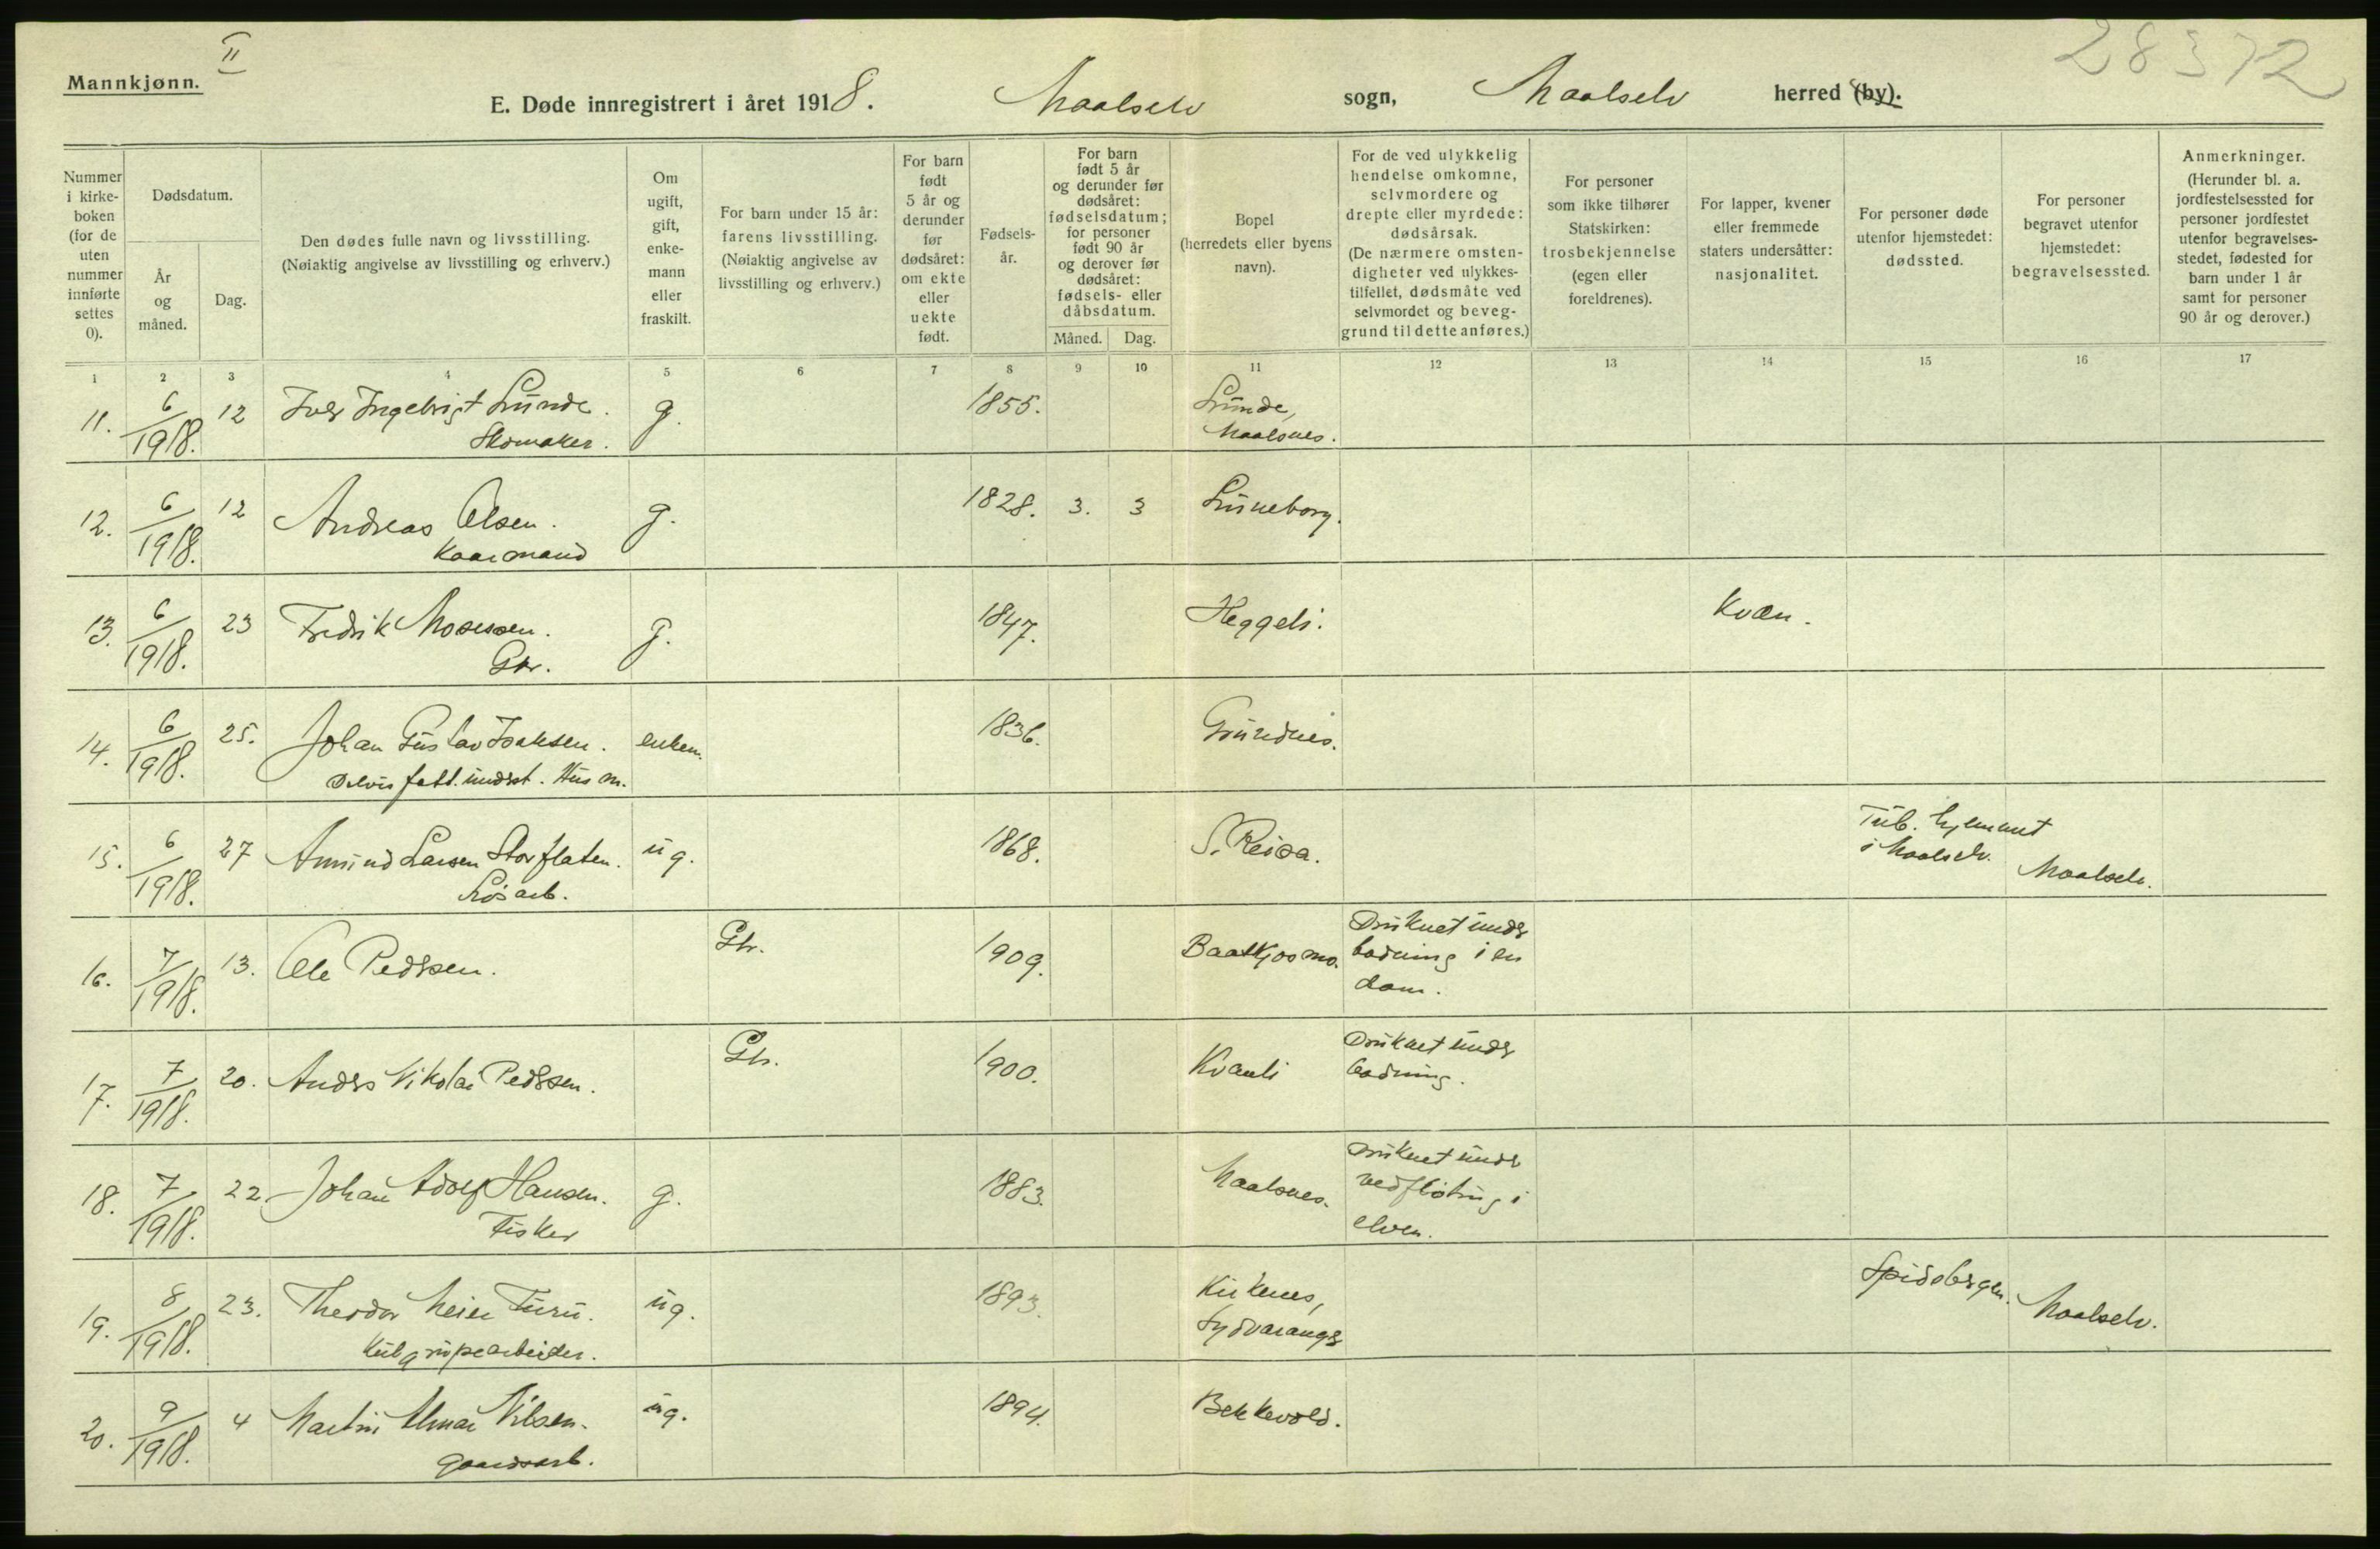 II
28372
Mannkjønn.
E. Døde innregistrert i året 1918. Maalselv sogn, Maalselv herred (by).
Nummer i kirke- boken (for de uten nummer innførte settes 0).
Dødsdatum.
År og måned.
Dag.
Den dødes fulle navn og livsstilling.
(Nøiaktig angivelse av livsstilling og erhverv.)
Om ugift, gift, enke- mann eller fraskilt.
For barn under 15 år:
farens livsstilling.
(Nøiaktig angivelse av
livsstilling og erhverv.)
For barn født 5 år og derunder før dødsåret: om ekte eller uekte født.
Fødsels- år.
For barn
født 5 år
og derunder før
dødsåret:
fødselsdatum;
for personer
født 90 år
og derover før
dødsåret:
fødsels- eller
dåbsdatum.
Måned. Dag.
Bopel
(herredets eller byens
navn).
For de ved ulykkelig
hendelse omkomne,
selvmordere og
drepte eller myrdede:
dødsårsak.
(De nærmere omsten-
digheter ved ulykkes-
tilfellet, dødsmåte ved
selvmordet og beveg-
grund til dette anføres.)
For personer
som ikke tilhører
Statskirken:
trosbekjennelse
(egen eller
foreldrenes).
For lapper, kvener
eller fremmede
staters undersåtter:
nasjonalitet.
For personer døde
utenfor hjemstedet:
dødssted.
For personer
begravet utenfor
hjemstedet:
begravelsessted.
Anmerkninger.
(Herunder bl. a.
jordfestelsessted for
personer jordfestet
utenfor begravelses-
stedet, fødested for
barn under 1 år
samt for personer
90 år og derover.)
1 2 3 4 5 6 7 8 9 10 11 12 13 14 15 16 17
11. 6/1918. 12 Iver Ingebrigt Lunde. g. 1855. Lunde,
Skomaker. Maalsnes.
12. 6/1918. 12 Andreas Olsen. g. 1828. 3. 3 Luneborg.
Kaarmand
13. 6/1918. 23 Fredrik Mosessen. g. 1847. Heggeli. Kvæn.
Gbr.
14. 6/1918. 25. Johan Gustav Isaksen. enkem. 1836. Grundnes.
Delvis fatt. underst. Husm.
15. 6/1918. 27 Amund Larsen Storflaten. ug. 1868. S. Reisa. Tub. hjemmet
Løsarb. i Maalselv. Maalselv.
16. 7/1918. 13. Ole Pedersen. Gbr. 1909. Baatkjosmo. Druknet under
badning i en
dam.
17. 7/1918. 20. Anders Nikolai Pedersen. Gbr. 1900. Kvanli Druknet under
badning.
18. 7/1918. 22. Johan Adolf Hansen. g. 1883. Maalsnes. Druknet under
Fisker vedfløting i
elven.
19. 8/1918. 23. Theodor Meier Turu. ug. 1893. Kirkenes, Spidsbergen. Maalselv.
Kulgrubearbeider. Sydvaranger
20. 9/1918. 4 Martin Almar Nilsen. ug. 1894. Bekkevold.
Gaardsarb.